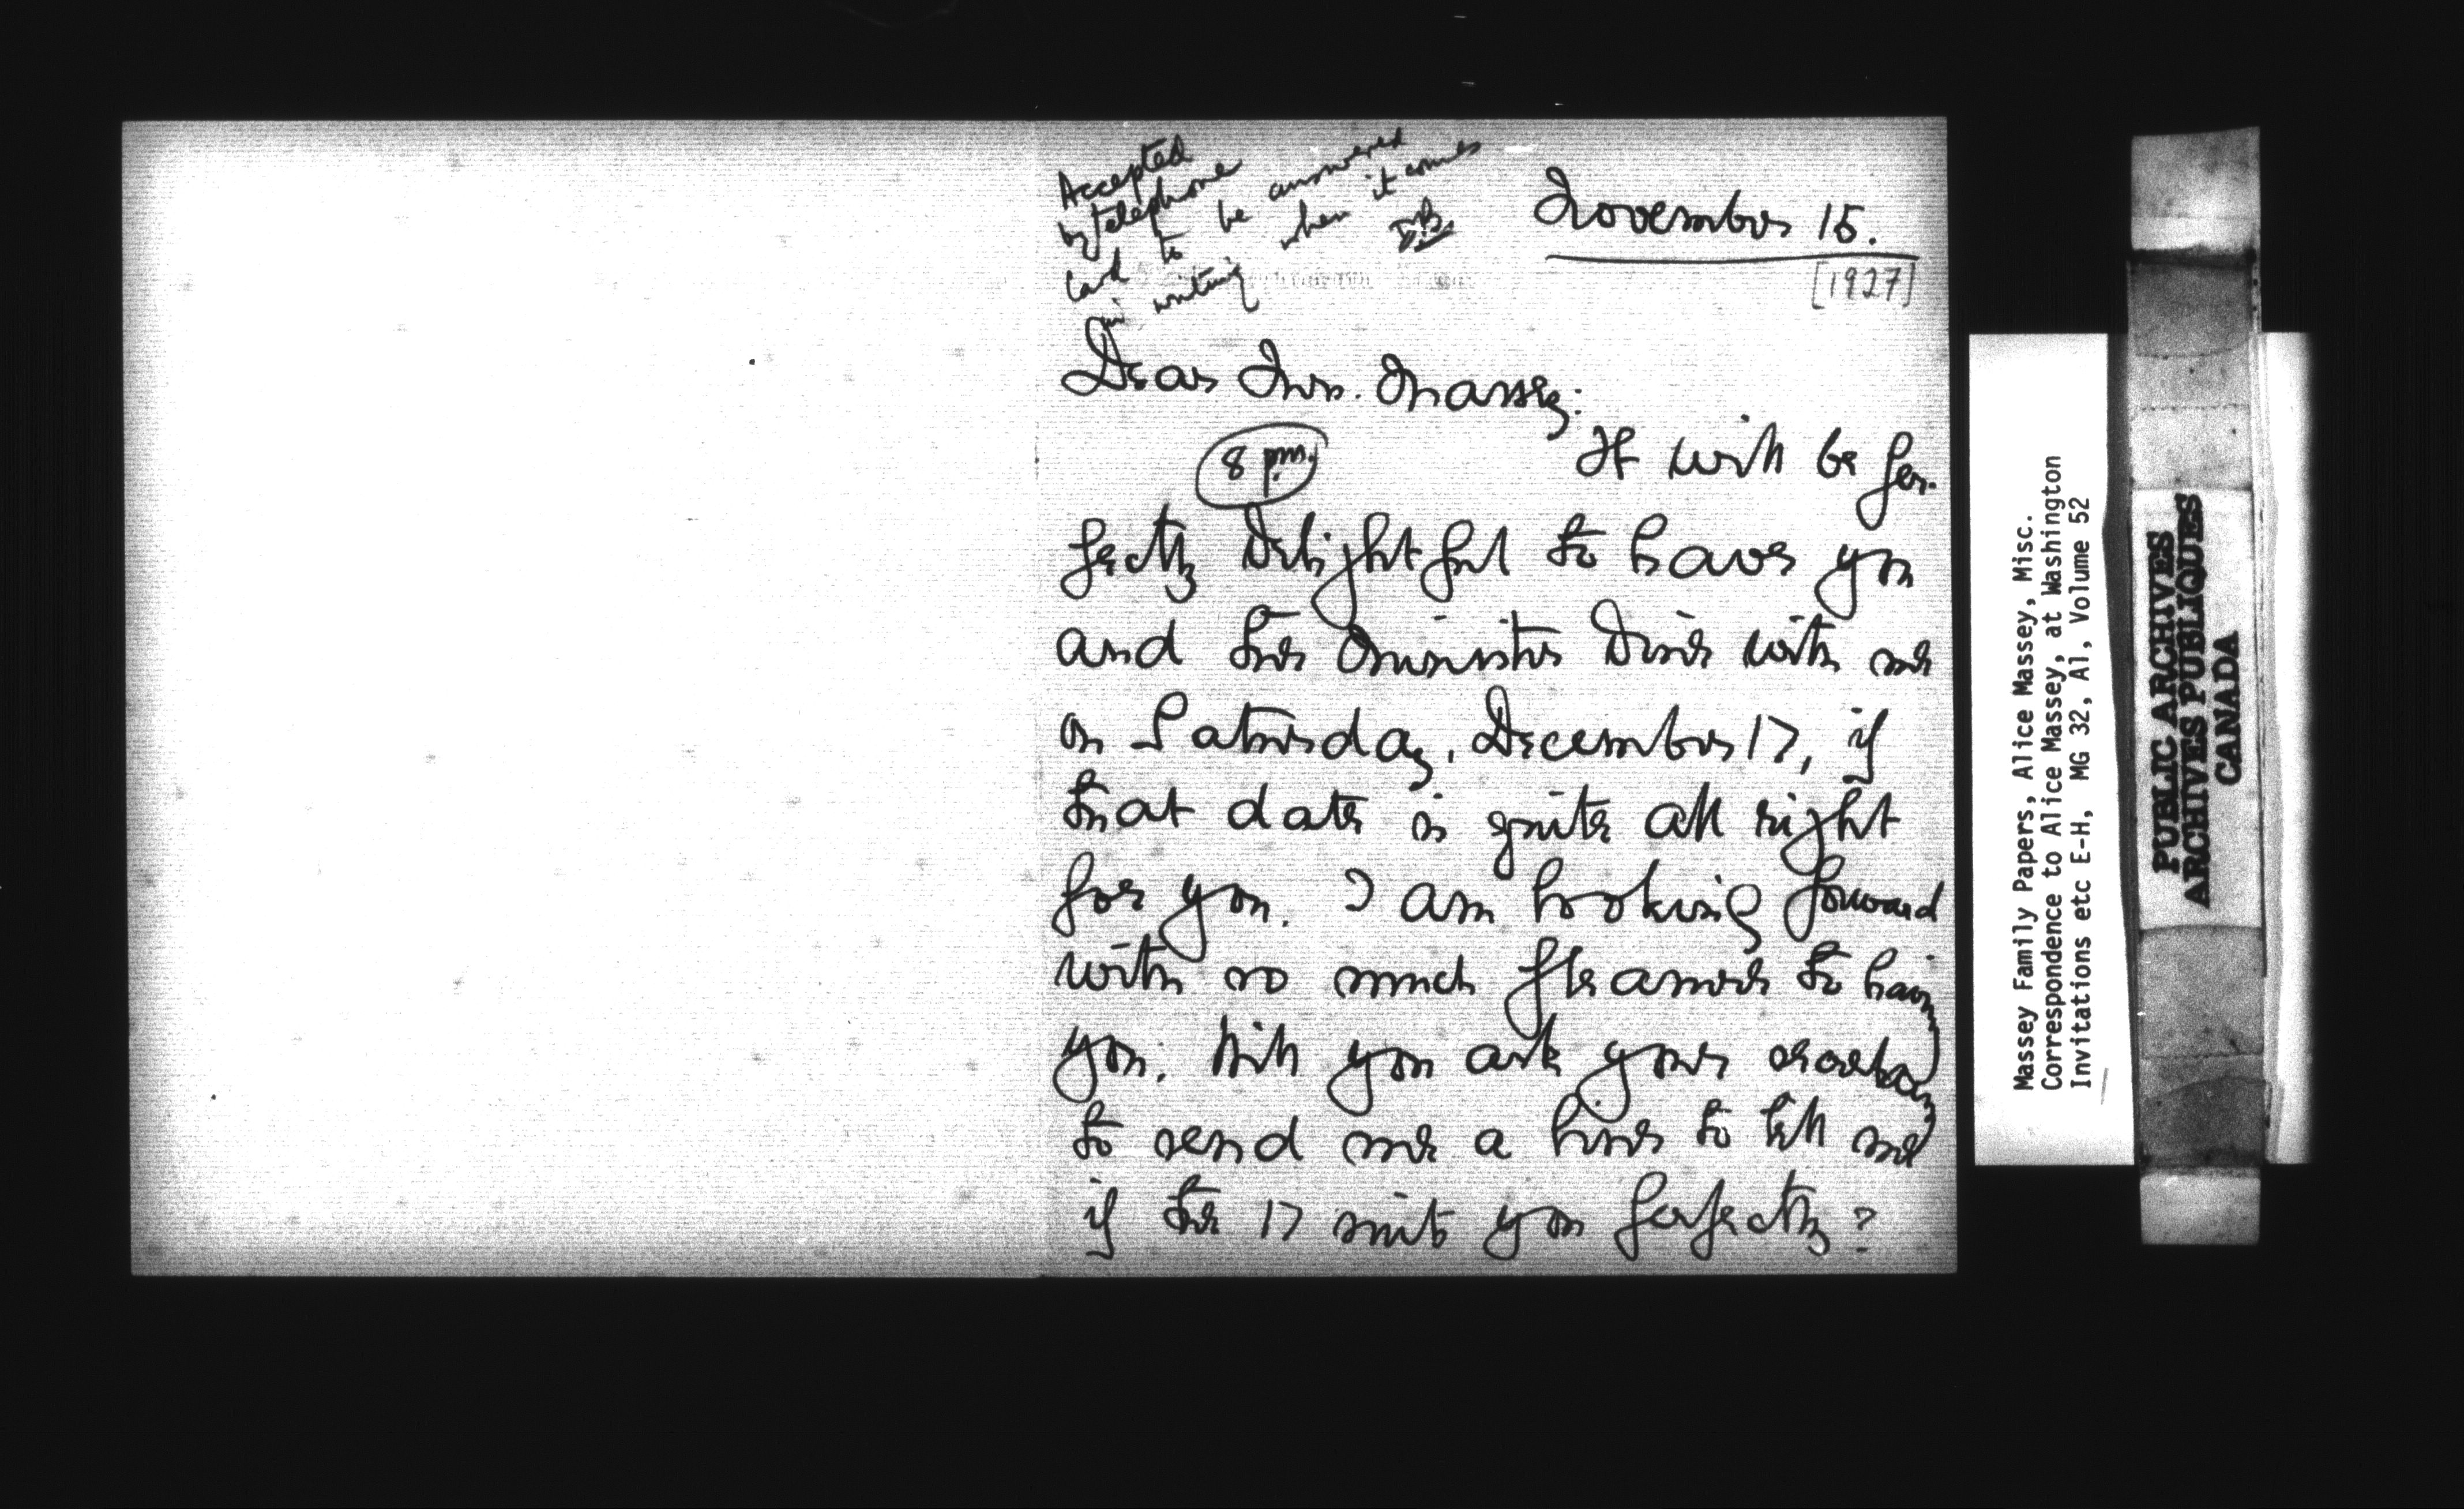 Accepted
by telephone
Card to be answered
in writing when it comes
November 15.
[1927]
Dear Mrs. Massey:
8 pm.
It will be per-
fectly delightful to have you
and the Minister dine with me
on Saturday, December 17, if
that date is quite all right
for you. I am looking forward
with so much pleasure to having
you. Will you ask your secretary
to send me a line to tell me
if the 17 suits you perfectly?
Massey Family Papers, Alice Massey, Misc.
Correspondence to Alice Massey, at Washington
Invitations etc E-H, MG 32, A1, Volume 52
PUBLIC ARCHIVES
ARCHIVES PUBLIQUES
CANADA